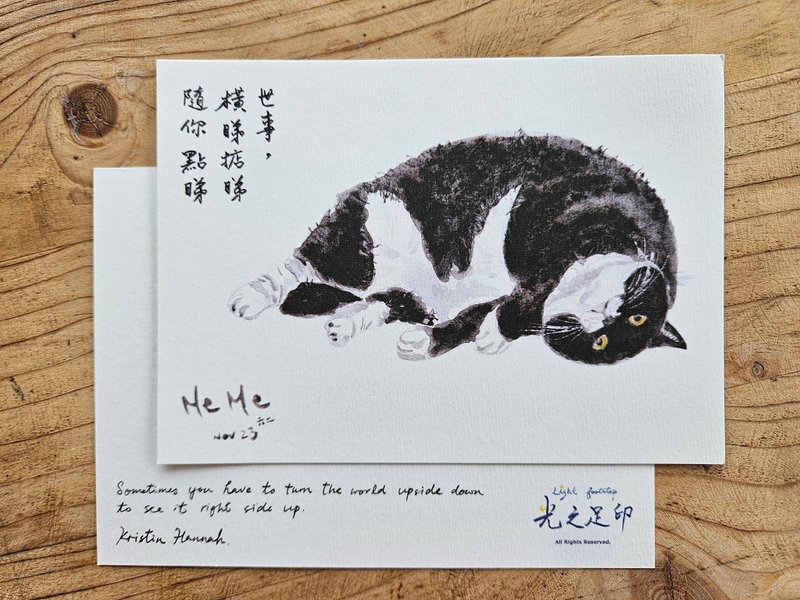 世事，
橫睇掂睇
隨你點睇
MeMe
Nov 23
Sometimes you have to turn the world upside down
to see it right side up.
Kristin Hannah.
Light footstep
光之足印
All Rights Reserved.